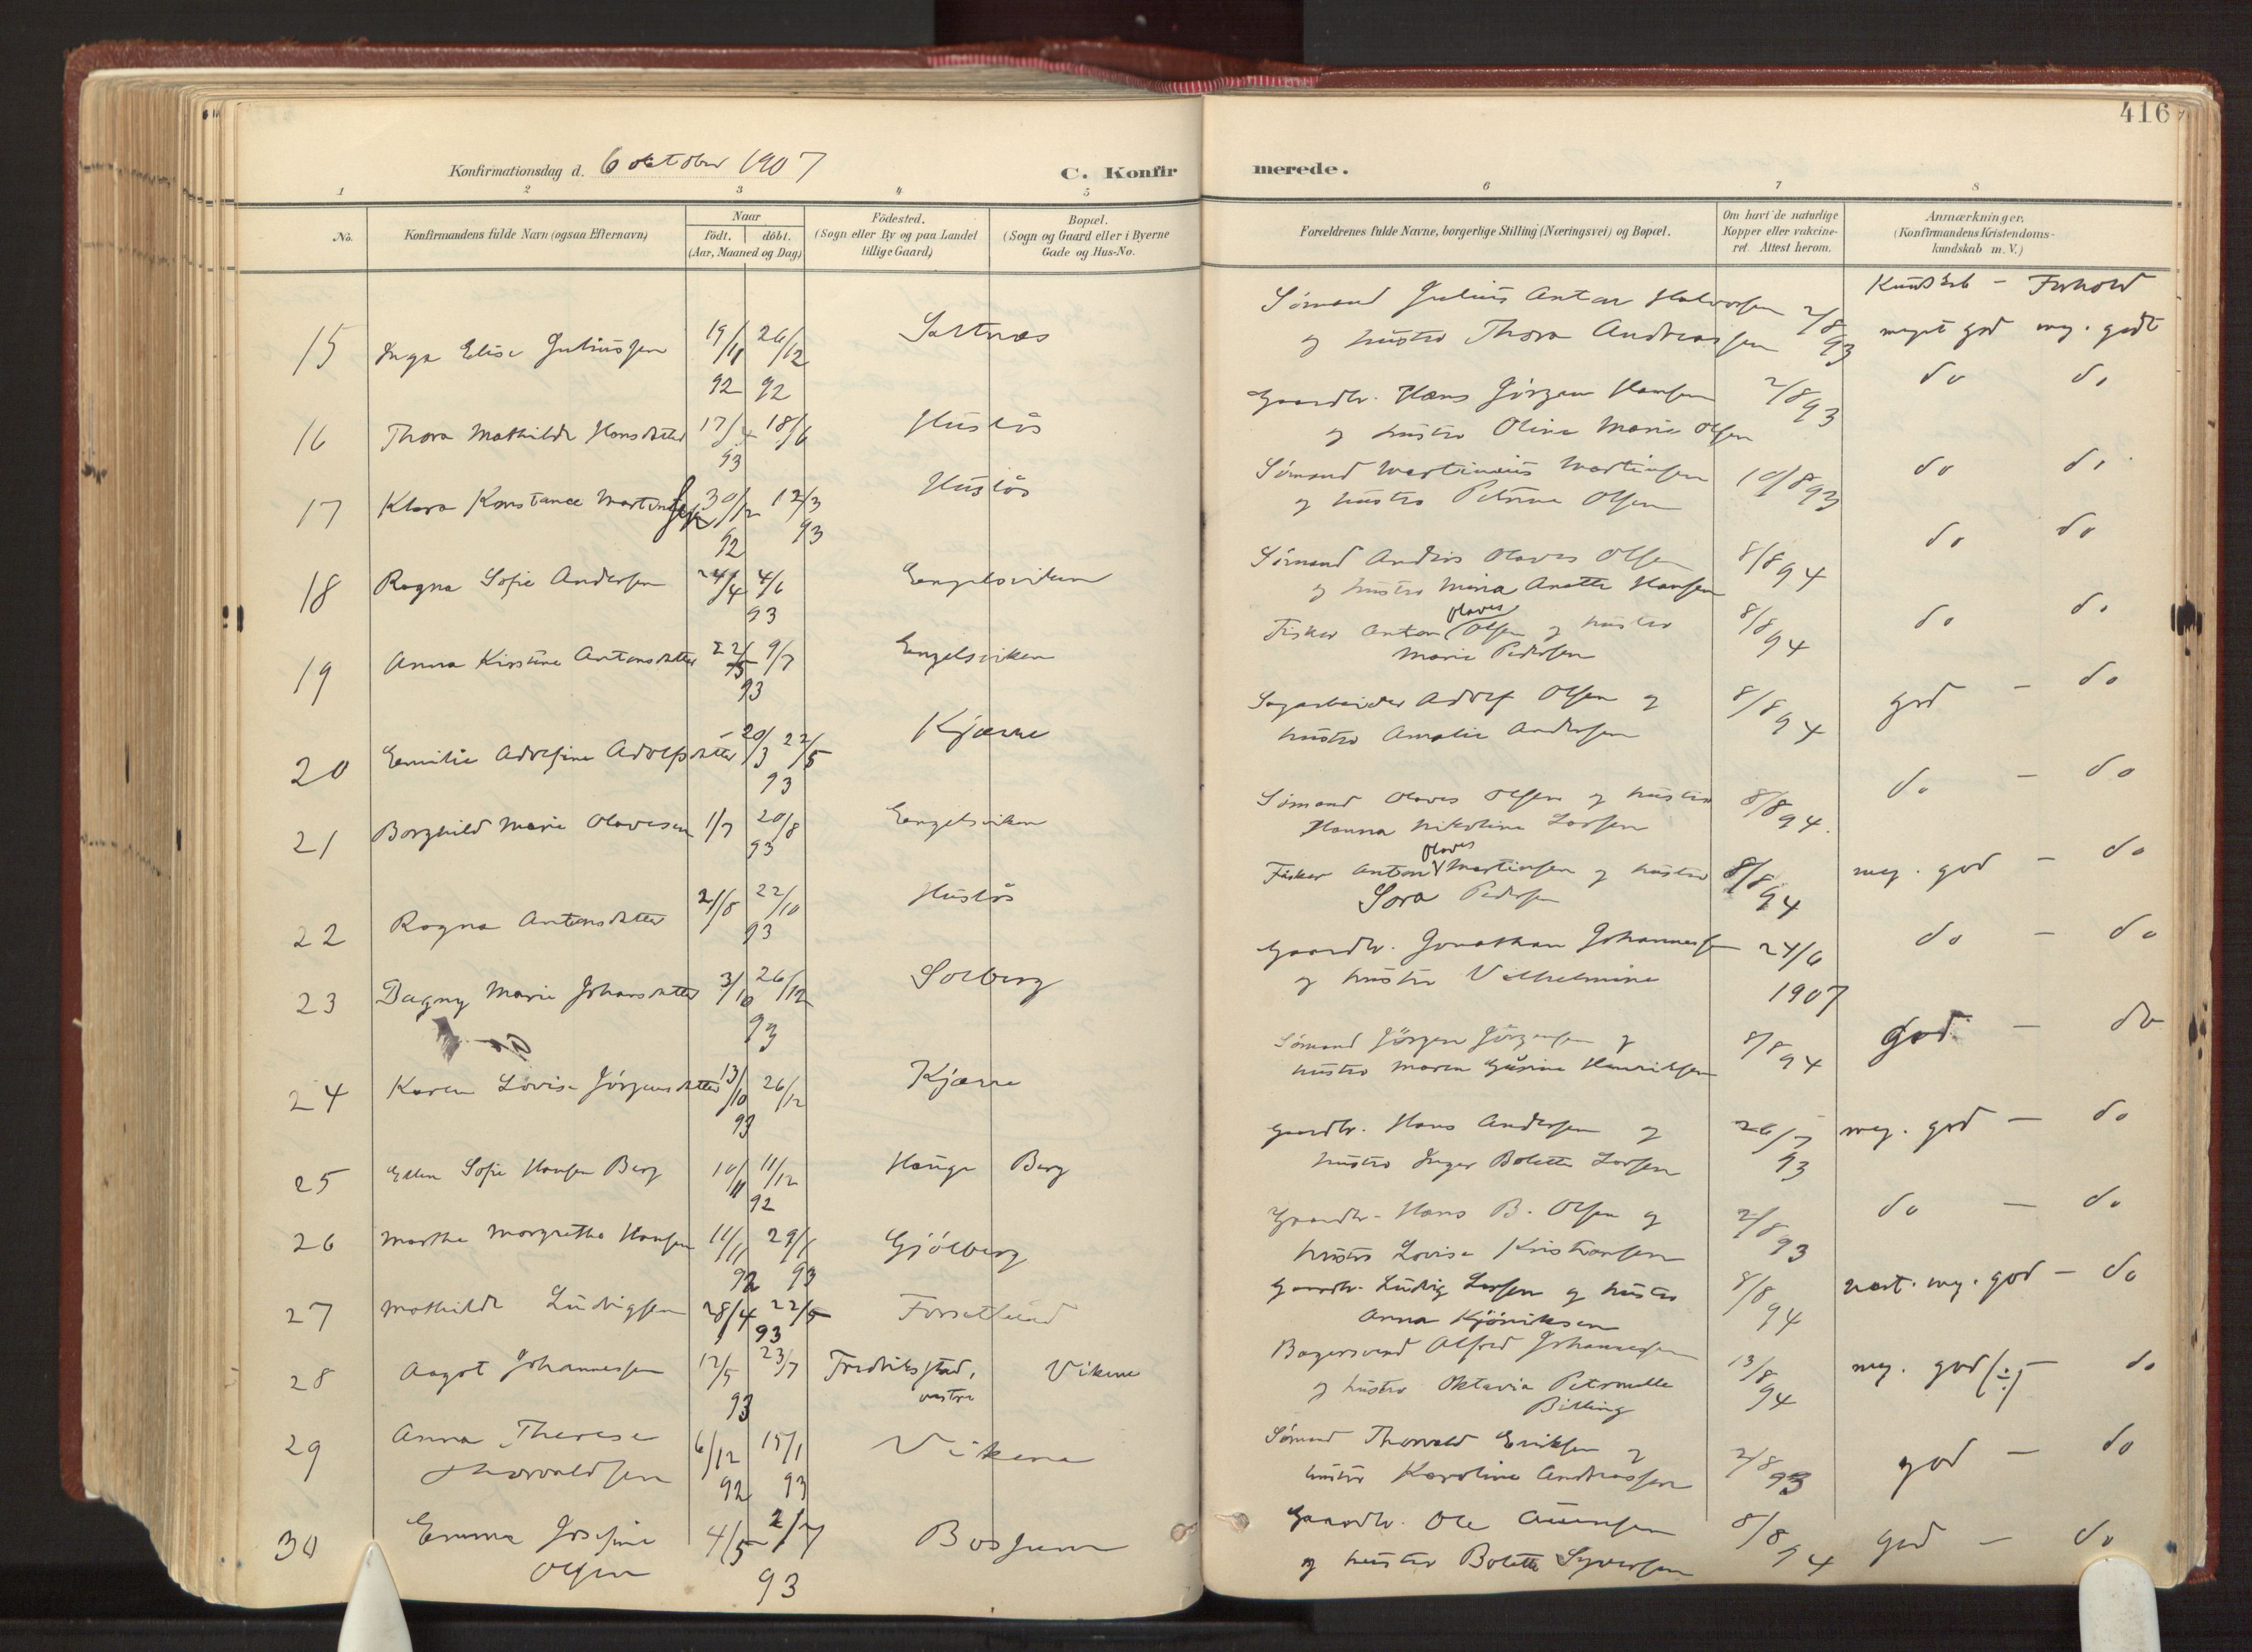 416
Konfirmationsdag d. 6 oktober 1907
C. Konfirmerede.
1 2 3 4 5 6 7 8
No. Konfirmandens fulde Navn (ogsaa Efternavn) Naar födt. döbt. (Aar, Maaned og Dag) Födested. (Sogn eller By og paa Landet tillige Gaard) Bopæl. (Sogn og Gaard eller i Byerne Gade og Hus-No. Forældrenes fulde Navne, borgerlige Stilling (Næringsvei) og Bopæl. Om havt de naturlige Kopper eller vakcineret. Attest herom. Anmærkninger, (Konfirmandens Kristendomskundskab m. V.)
Kundskb - Forhold
15 Inga Elise Juliussen 19/11 92 26/12 92 Saltnæs Sömand Julius Anton Halvorsen og hustru Thora Andreassen 2/8 93 meget god meg. godt
16 Thora Mathilde Hansdatter 17/4 18/6 93 Huslös Gaardbr. Hans Jörgen Hansen og hustru Oline Marie Olsen 2/8 93 do do
17 Klara Konstance Martinsen 30/12 92 12/3 93 Huslös Sömand Martinius Martinsen og hustru Petrine Olsen 10/8 93 do do
18 Ragna Sofie Andersen 24/4 4/6 93 Engelsviken Sömand Andrés Olaves Olsen og hustru Mina Anette Hansen 8/8 94 do do
19 Anna Kirstine Antonsdatter 22/5 9/7 93 Engelsviken Fisker Anton Olaves Olsen og hustru Marie Pedersen 8/8 94 do do
20 Emilie Adolfine Adolfsdatter 20/3 22/5 93 Kjærre Sagarbeider Adolf Olsen og hustru Amalie Andersen 8/8 94 god - do
21 Borghild Marie Olavesen 1/7 20/8 93 Engelsviken Sömand Olaves Olsen og hustru Hanna Nikoline Larsen 8/8 94. do - do
22 Ragna Antonsdatter 21/8 22/10 93 Huslös Fisker Anton Olaves Martinsen og hustru Sara Pedersen 8/8 94 meg. god - do
23 Dagny Marie Johansdatter 3/10 26/12 93 Solberg Gaardbr. Jonathan Johannessen og hustru Vilhelmine 24/6 1907 do - do
24 Karen Lovise Jörgensdatter 13/10 26/12 93 Kjærre Sömand Jörgen Jörgensen og hustru Maren Gusine Henriksen 8/8 94 god - do
25 Ellen Sofie Hansen Berg 10/11 11/12 92 Hauge Berg Gaardbr. Hans Andersen og hustru Inger Bolette Larsen 26/7 93 meg. god - do
26 Marthe Margrethe Hansen 11/11 92 29/1 93 Gjölberg Gaardbr. Hans B. Olsen og hustru Lovise Kristiansen 2/8 93 do - do
27 Mathilde Ludvigsen 28/4 22/5 93 Forsetlund Gaardbr. Ludvig Larsen og hustru Anna Kjöniksen 8/8 94 næst. meg. god - do
28 Aagot Johannessen 12/5 23/7 93 Fredriksstad, vestre Vikene Bagersvend Alfred Johannessen og hustru Oktavia Petronelle Billing 13/8 94 meg. god (÷) - do
29 Anna Therese Thorvaldsen 6/12 92 15/1 93 Vikene Sömand Thorvald Eriksen og hustru Karoline Andreassen 2/8 93 god - do
30 Emma Josefine Olsen 4/5 2/7 93 Bosjum Gaardbr. Ole Auensen og hustru Bolette Syversen 8/8 94 god - do